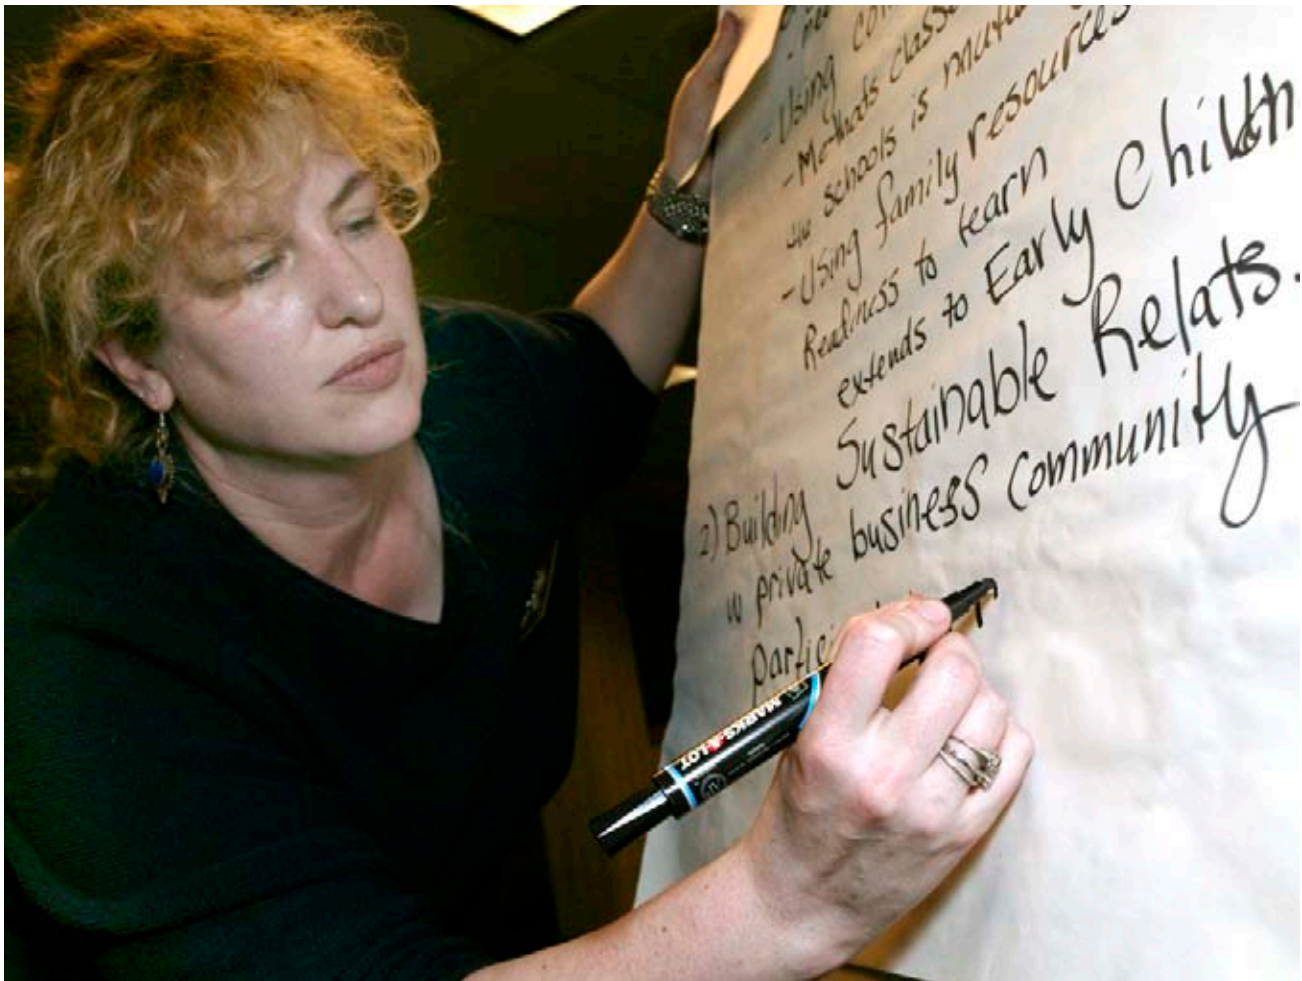 - Using
- Methods
in schools is
- Using family resources
Readiness to learn
extends to Early Childh
2) Building Sustainable Relats.
w private business community
MARKS-A-LOT